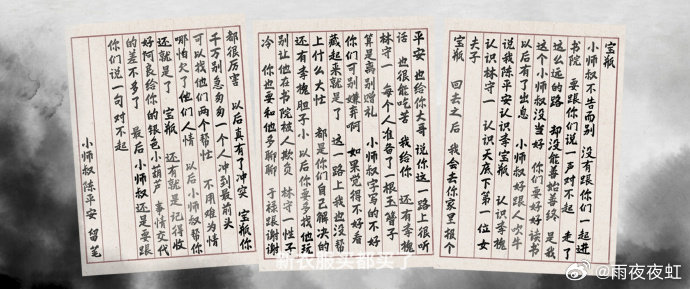 宝瓶
小师叔不告而别 没有跟你们一起进
书院 要跟你们说一声对不起 走了
这么远的路 却没能善始善终 是我
这个小师叔没当好 你们要好好读书
以后有了出息 小师叔好跟人吹牛
说我陈平安认识李宝瓶 认识李槐
认识林守一 认识天底下第一位女
夫子
宝瓶 回去之后 我会去你家里报个
平安 也给你大哥说你这一路上很听
话 也很能吃苦 我给你 还有李槐
林守一 每个人准备了一根玉簪子
算是离别赠礼 小师叔字写的不好
你们可别嫌弃啊 如果觉得不好看
藏起来就是了 这一路上我也没帮
上什么大忙 都是你们自己解决的
还有李槐胆子小 以后你要多找他玩
别让他在书院被人欺负 林守一性子
冷 你也要和他多聊聊 于禄跟谢谢
都很厉害 以后真有了冲突 宝瓶你
千万别急匆匆一个人冲到最前头
可以找他们两个帮忙 不用难为情
哪怕欠了他们人情 以后小师叔帮你
还就是了 宝瓶 还有就是记得收
好阿良给你的银色小葫芦 事情交代
的差不多了 最后 小师叔还是要跟
你们说一句对不起
小师叔陈平安 留笔
新衣服买都买了
@雨夜夜虹